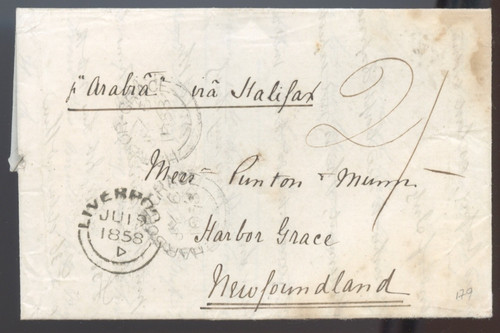 pr "Arabia" viâ Halifax
2/-
Messrs Punton & Munn
Harbor Grace
Newfoundland
LIVERPOOL
JU 19
1858
129